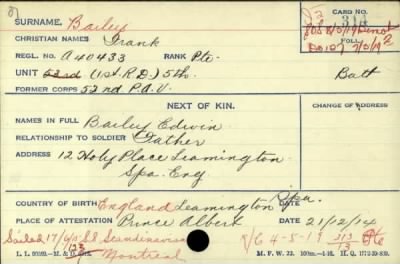 SURNAME, Bailey
CARD NO.
CHRISTIAN NAMES Frank
REGL. NO. A 40433 RANK Pte.
FOLL.
UNIT 53rd (1st R.D.) 5th. Batt
FORMER CORPS 52nd P.A.V.
NEXT OF KIN.
CHANGE OF ADDRESS
NAMES IN FULL Bailey Edwin
RELATIONSHIP TO SOLDIER Father
ADDRESS 12 Holy Place Leamington
Spa. Eng
COUNTRY OF BIRTH England Leamington Spa. DATE
PLACE OF ATTESTATION Prince Albert DATE 21/12/14
Sailed 17/6/15 S.S. Scandinavian
Montreal
R/C 4-5-19 313/13 Pte
M. F. W. 22.